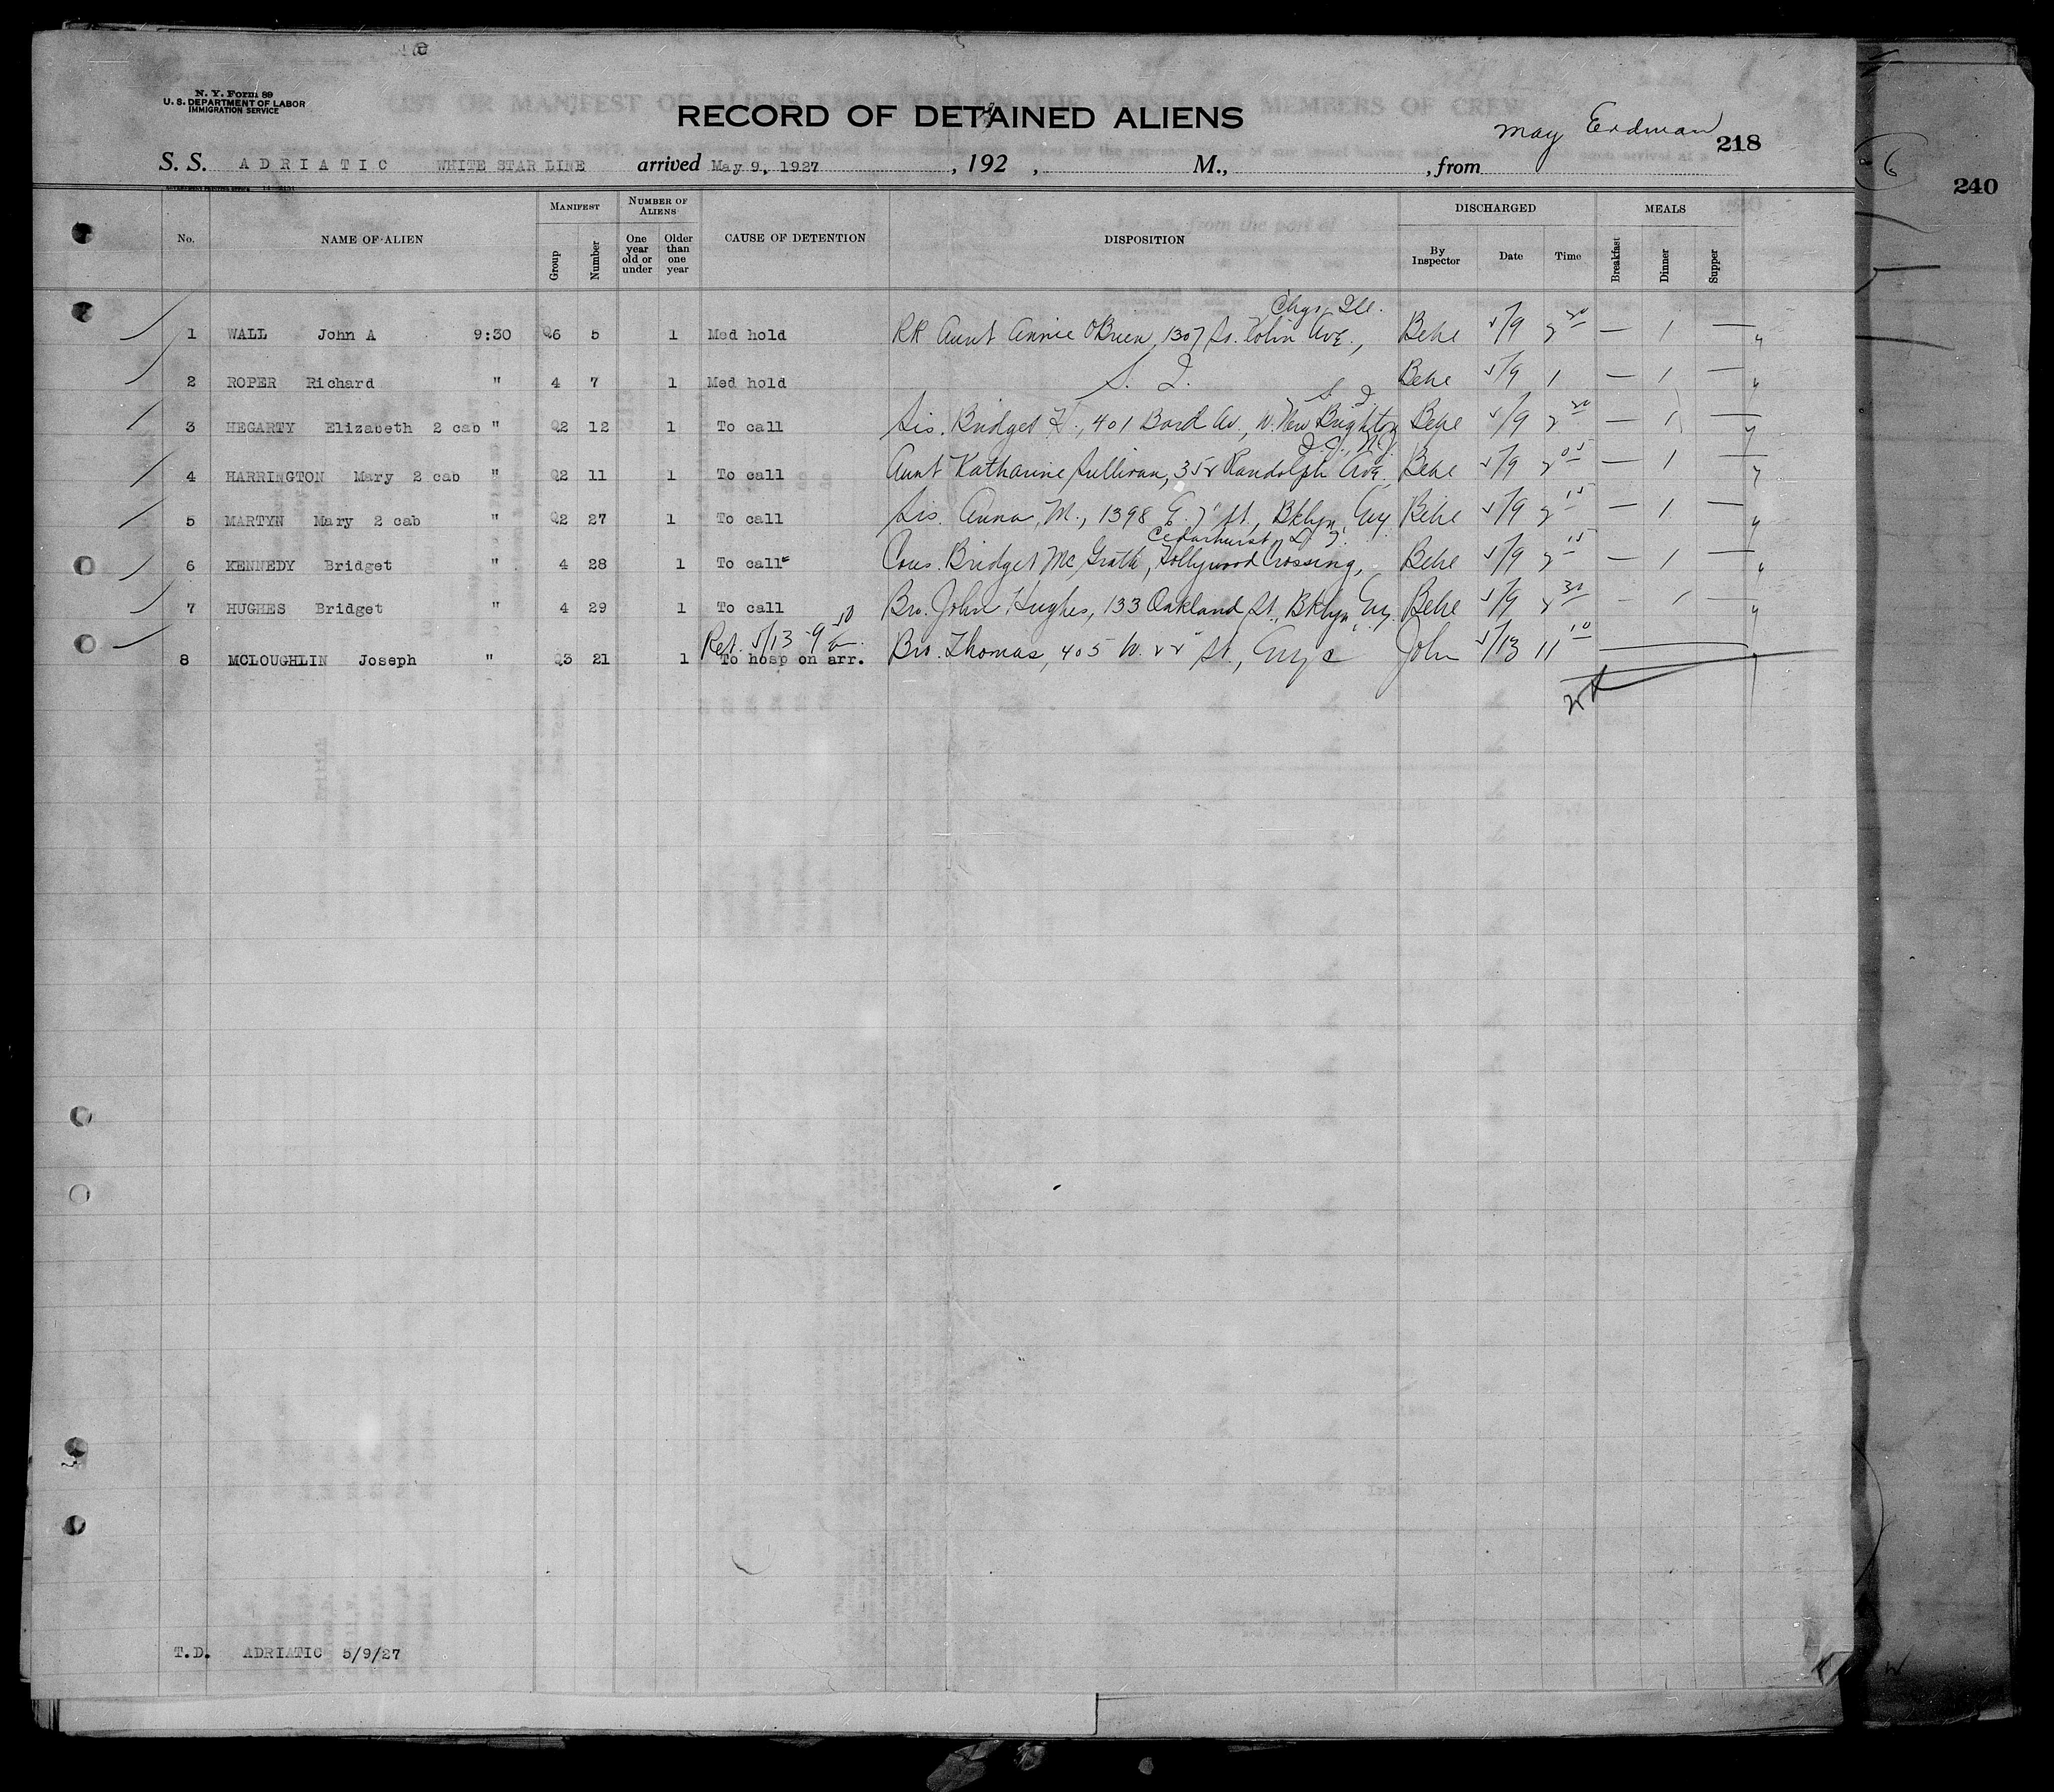 N. Y. Form 89
U. S. DEPARTMENT OF LABOR
IMMIGRATION SERVICE
RECORD OF DETAINED ALIENS
May Erdman
218
240
S. S. ADRIATIC WHITE STAR LINE arrived May 9, 1927, 192 , M., , from
No. NAME OF ALIEN MANIFEST Group Number NUMBER OF ALIENS One year old or under Older than one year CAUSE OF DETENTION DISPOSITION DISCHARGED By Inspector Date Time MEALS Breakfast Dinner Supper
Chgo, Ill.
1 WALL John A 9:30 Q6 5 1 Med hold RR Aunt Annie O'Brien, 1307 So. Ave., Behe 5/9 2 20 — 1 —
2 ROPER Richard " 4 7 1 Med hold S. I. Behe 5/9 1 — 1 —
S. I.
3 HEGARTY Elizabeth 2 cab " Q2 12 1 To call Sis. Bridget H., 401 Bard Av., W. New Brighton Behe 5/9 2 20 — 1 —
J.C., N.J.
4 HARRINGTON Mary 2 cab " Q2 11 1 To call Aunt Katharine Sullivan, 352 Randolph Ave., Behe 5/9 2 05 — 1 —
5 MARTYN Mary 2 cab " Q2 27 1 To call Sis. Anna M., 1398 E. 7" St., Bklyn, Ny Behe 5/9 2 15 — 1 —
Cedarhurst, L. I.
6 KENNEDY Bridget " 4 28 1 To call Cous. Bridget Mc Grath, Hollywood Crossing, Behe 5/9 2 15 — 1 —
7 HUGHES Bridget " 4 29 1 To call Bro. John Hughes, 133 Oakland St., Bklyn, Ny. Behe 5/9 2 30 — 1 —
Ret. 5/13 - 9 50 a
8 MCLOUGHLIN Joseph " Q3 21 1 To hosp on arr. Bro. Thomas, 405 W. 22" St., Nyc John 5/13 11 10
T.D. ADRIATIC 5/9/27